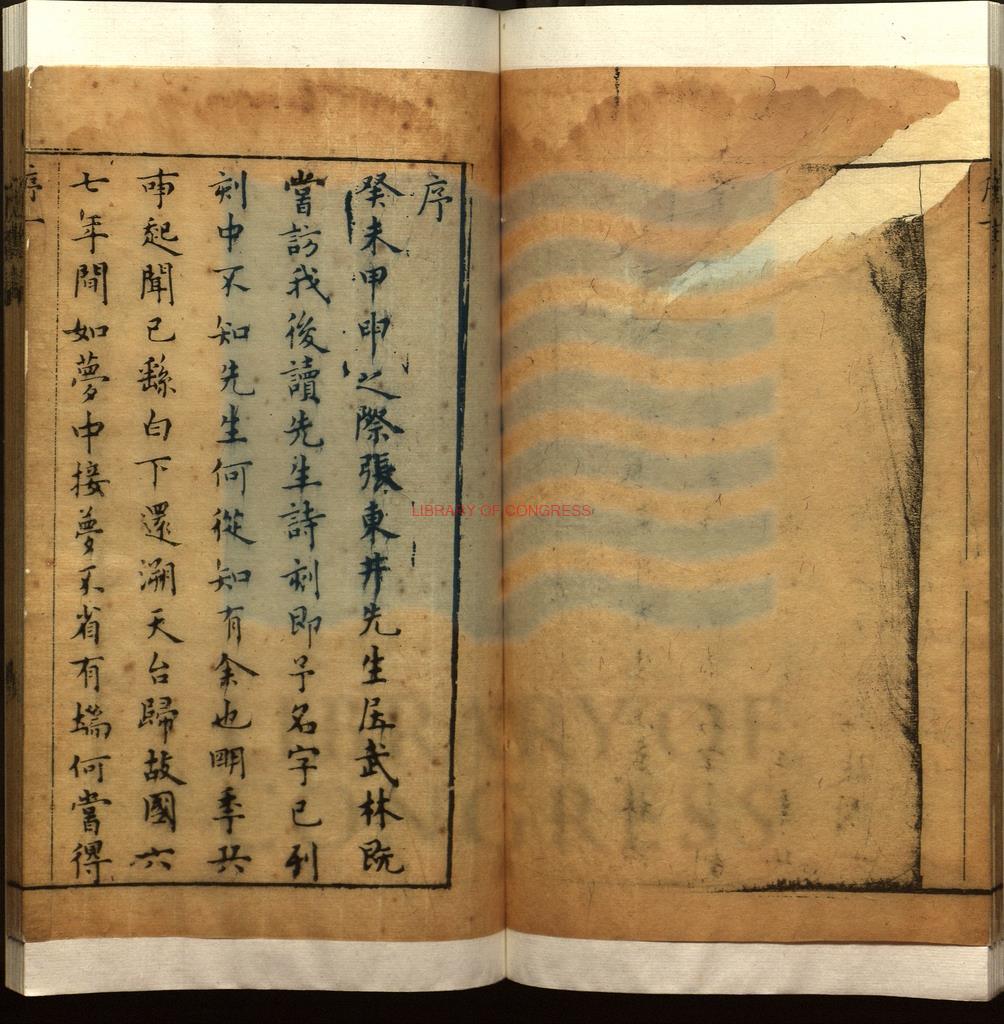 序
癸未甲申之際張東井先生居武林既
嘗訪我後讀先生詩刻即予名字已列
刻中不知先生何從知有余也明季共
南起聞已繇白下還溯天台歸故國六
七年間如夢中接夢不省有端何嘗得
序一
LIBRARY OF CONGRESS